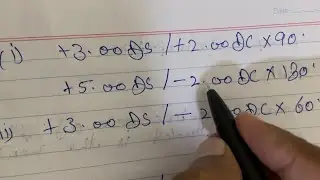 (i) +3.00 DS / +2.00 DC × 90°
+5.00 DS / -2.00 DC × 130°
ii) +3.00 DS / - 2.00 DC × 60°